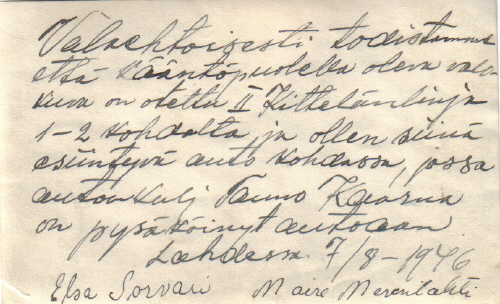 Valaehtoisesti todistamme
että kääntöpuolella oleva valo
kuva on otettu II Kittelänlinja
1-2 kohdalta ja ollen siinä
esiintyvä auto kohdassa, jossa
autonkulj Tauno
on pysäköinyt autoaan
Lahdessa 7/8-1946
Elsa Sorvari Maire